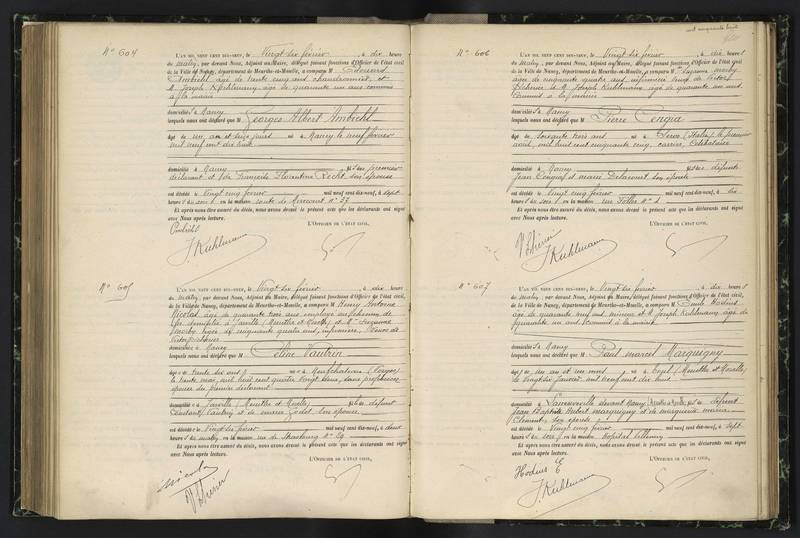 N° 604
L'AN MIL NEUF CENT DIX-NEUF, le Vingt six février, à dix heures
du matin, par devant Nous, Adjoint au Maire, délégué faisant fonctions d'Officier de l'état civil,
de la Ville de Nancy, département de Meurthe-et-Moselle, a comparu M Edouard
Ambiehl âgé de trente cinq ans, et
M Joseph Kuhlmann âgé de quarante un ans commis
à la mairie
domiciliés à Nancy
lesquels nous ont déclaré que M Georges Albert Ambiehl
âgé de un an et seize jours né à Nancy le neuf février
mil neuf cent dix huit
domicilié à Nancy fils du premier
déclarant et de Françoise Florentine Recht son épouse
est décédé le Vingt cinq février mil neuf cent dix-neuf, à sept
heures du soir en la maison route de Mirecourt n° 37
Et après nous être assuré du décès, nous avons dressé le présent acte que les déclarants ont signé
avec Nous après lecture.
L'OFFICIER DE L'ÉTAT CIVIL,
Ambiehl
J. Kuhlmann
N° 605
L'AN MIL NEUF CENT DIX-NEUF, le Vingt six février, à dix heures
du matin, par devant Nous, Adjoint au Maire, délégué faisant fonctions d'Officier de l'état civil,
de la Ville de Nancy, département de Meurthe-et-Moselle, a comparu M Henry Antoine
Nicolas, âgé de quarante trois ans employé au chemin de
fer domicilié à Jarville (Meurthe et Moselle) et Mme Suzanne
âgée de cinquante quatre ans, infirmière, veuve de
Victor
domiciliée à Nancy
lesquels nous ont déclaré que M Céline Vautrin
âgée de trente six ans née à Neufchâteau (Vosges)
le trente mai mil huit cent quatre vingt deux, sans profession
épouse du premier déclarant
domiciliée à Jarville (Meurthe et Moselle) fille de défunt
Vautrin et de son épouse
est décédée le Vingt six février mil neuf cent dix-neuf, à deux
heures du matin en la maison rue de Strasbourg n° 29
Et après nous être assuré du décès, nous avons dressé le présent acte que les déclarants ont signé
avec Nous après lecture.
L'OFFICIER DE L'ÉTAT CIVIL,
Nicolas
N° 606
L'AN MIL NEUF CENT DIX-NEUF, le Vingt six février, à dix heures
du matin, par devant Nous, Adjoint au Maire, délégué faisant fonctions d'Officier de l'état civil,
de la Ville de Nancy, département de Meurthe-et-Moselle, a comparu Mme Suzanne
âgée de cinquante quatre ans infirmière veuve de Victor
et M Joseph Kuhlmann âgé de quarante un ans
commis à la mairie
domiciliés à Nancy
lesquels nous ont déclaré que M Pierre Cengia
âgé de soixante trois ans né à (Italie) le premier
avril mil huit cent cinquante cinq, carrier, célibataire
domicilié à Nancy fils de défunts
Jean Cengia et de Marie son épouse
est décédé le Vingt cinq février mil neuf cent dix-neuf, à dix
heures du soir en la maison rue Foller n° 1
Et après nous être assuré du décès, nous avons dressé le présent acte que les déclarants ont signé
avec Nous après lecture.
L'OFFICIER DE L'ÉTAT CIVIL,
J. Kuhlmann
N° 607
L'AN MIL NEUF CENT DIX-NEUF, le Vingt six février, à dix heures
du matin, par devant Nous, Adjoint au Maire, délégué faisant fonctions d'Officier de l'état civil,
de la Ville de Nancy, département de Meurthe-et-Moselle, a comparu M Emile Hodius
âgé de quarante neuf ans et M Joseph Kuhlmann, âgé de
quarante un ans commis à la mairie
domiciliés à Nancy
lesquels nous ont déclaré que M Paul Marcel Marquigny
âgé de un an et un mois né à (Meurthe et Moselle)
le vingt six janvier mil neuf cent dix huit
domicilié à Laneuveville devant Nancy (Meurthe et Moselle) fils de défunt
Jean Baptiste Hubert Marquigny et de Marguerite Maria
Clement, son épouse
est décédé le Vingt cinq février mil neuf cent dix-neuf, à sept
heures du soir en la maison hôpital Villemin
Et après nous être assuré du décès, nous avons dressé le présent acte que les déclarants ont signé
avec Nous après lecture.
L'OFFICIER DE L'ÉTAT CIVIL,
Hodius E
J. Kuhlmann